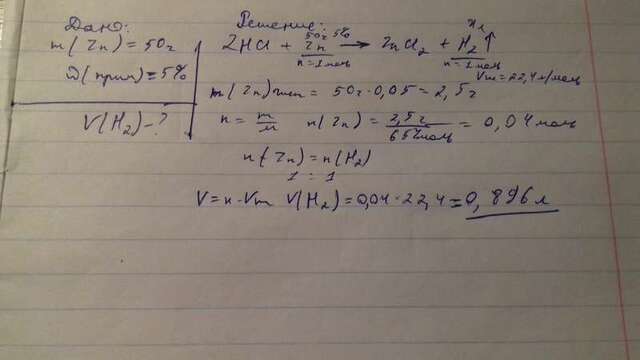 Дано:
m(Zn) = 50г
ω(прим) = 5%
V(H₂) - ?
Решение:
50г 5% x л
2HCl + Zn → ZnCl₂ + H₂↑
n = 1 моль n = 1 моль
Vm = 22,4 л/моль
m(Zn) = 50г · 0,05 = 2,5г
n = m/M n(Zn) = 2,5г / 65г/моль = 0,04 моль
n(Zn) = n(H₂)
1 = 1
V = n · Vm V(H₂) = 0,04 · 22,4 = 0,896 л